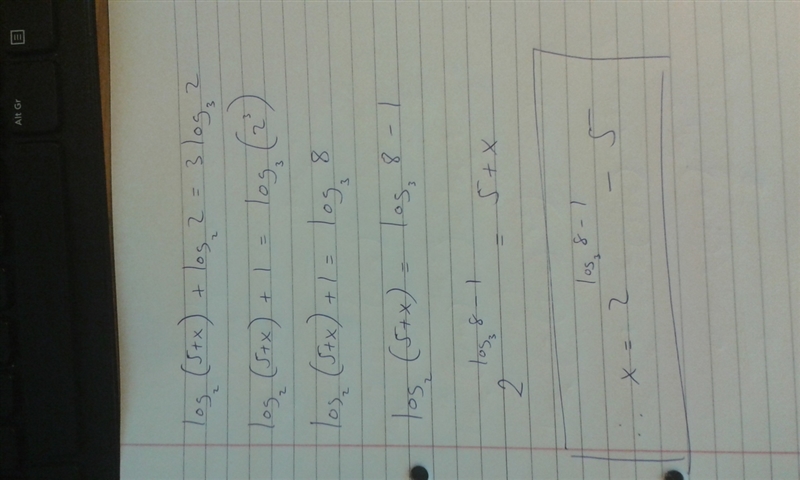 log₂(5+x) + log₂2 = 3log₃2
log₂(5+x) + 1 = log₃(2³)
log₂(5+x) + 1 = log₃8
log₂(5+x) = log₃8 - 1
2^(log₃8 - 1) = 5+x
∴ x = 2^(log₃8 - 1) - 5
Alt Gr